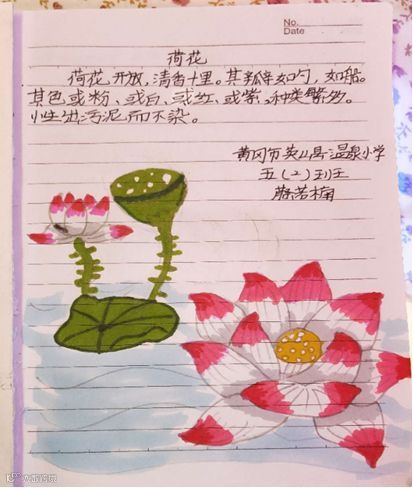 No.
Date
荷花
荷花开放,清香十里。其瓣如勺,如船。
其色或粉、或白、或红、或紫,种类繁多。
性出污泥而不染。
黄冈市英山县温泉小学
五(2)班
陈若楠